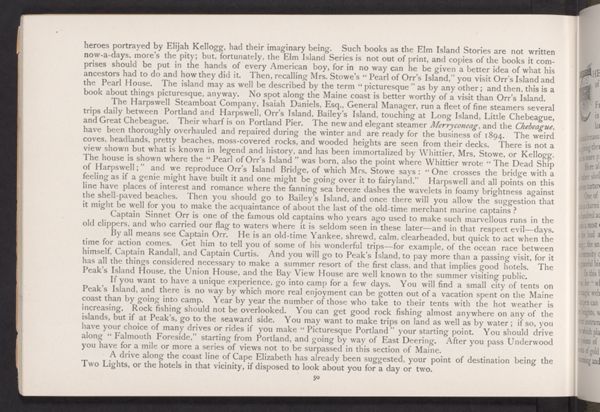 heroes portrayed by Elijah Kellogg, had their imaginary being. Such books as the Elm Island Stories are not written
now-a-days, more's the pity; but, fortunately, the Elm Island Series is not out of print, and copies of the books it com-
prises should be put in the hands of every American boy, for in no way can he be given a better idea of what his
ancestors had to do and how they did it. Then, recalling Mrs. Stowe's "Pearl of Orr's Island," you visit Orr's Island and
the Pearl House. The island may as well be described by the term "picturesque" as by any other; and then, this is a
book about things picturesque, anyway. No spot along the Maine coast is better worthy of a visit than Orr's Island.
The Harpswell Steamboat Company, Isaiah Daniels, Esq., General Manager, run a fleet of fine steamers several
trips daily between Portland and Harpswell, Orr's Island, Bailey's Island, touching at Long Island, Little Chebeague,
and Great Chebeague. Their wharf is on Portland Pier. The new and elegant steamer Merryconeag, and the Chebeague,
have been thoroughly overhauled and repaired during the winter and are ready for the business of 1894. The weird
coves, headlands, pretty beaches, moss-covered rocks, and wooded heights are seen from their decks. There is not a
view shown but what is known in legend and history, and has been immortalized by Whittier, Mrs. Stowe, or Kellogg.
The house is shown where the "Pearl of Orr's Island" was born, also the point where Whittier wrote "The Dead Ship
of Harpswell;" and we reproduce Orr's Island Bridge, of which Mrs. Stowe says: "One crosses the bridge with a
feeling as if a genie might have built it and one might be going over it to fairyland." Harpswell and all points on this
line have places of interest and romance where the fanning sea breeze dashes the wavelets in foamy brightness against
the shell-paved beaches. Then you should go to Bailey's Island, and once there will you allow the suggestion that
it might be well for you to make the acquaintance of about the last of the old-time merchant marine captains?
Captain Sinnet Orr is one of the famous old captains who years ago used to make such marvellous runs in the
old clippers, and who carried our flag to waters where it is seldom seen in these later—and in that respect evil—days.
By all means see Captain Orr. He is an old-time Yankee, shrewd, calm, clearheaded, but quick to act when the
time for action comes. Get him to tell you of some of his wonderful trips—for example, of the ocean race between
himself, Captain Randall, and Captain Curtis. And you will go to Peak's Island, to pay more than a passing visit, for it
has all the things considered necessary to make a summer resort of the first class, and that implies good hotels. The
Peak's Island House, the Union House, and the Bay View House are well known to the summer visiting public.
If you want to have a unique experience, go into camp for a few days. You will find a small city of tents on
Peak's Island, and there is no way by which more real enjoyment can be gotten out of a vacation spent on the Maine
coast than by going into camp. Year by year the number of those who take to their tents with the hot weather is
increasing. Rock fishing should not be overlooked. You can get good rock fishing almost anywhere on any of the
islands, but if at Peak's, go to the seaward side. You may want to make trips on land as well as by water; if so, you
have your choice of many drives or rides if you make "Picturesque Portland" your starting point. You should drive
along "Falmouth Foreside," starting from Portland, and going by way of East Deering. After you pass Underwood
you have for a mile or more a series of views not to be surpassed in this section of Maine.
A drive along the coast line of Cape Elizabeth has already been suggested, your point of destination being the
Two Lights, or the hotels in that vicinity, if disposed to look about you for a day or two.
50